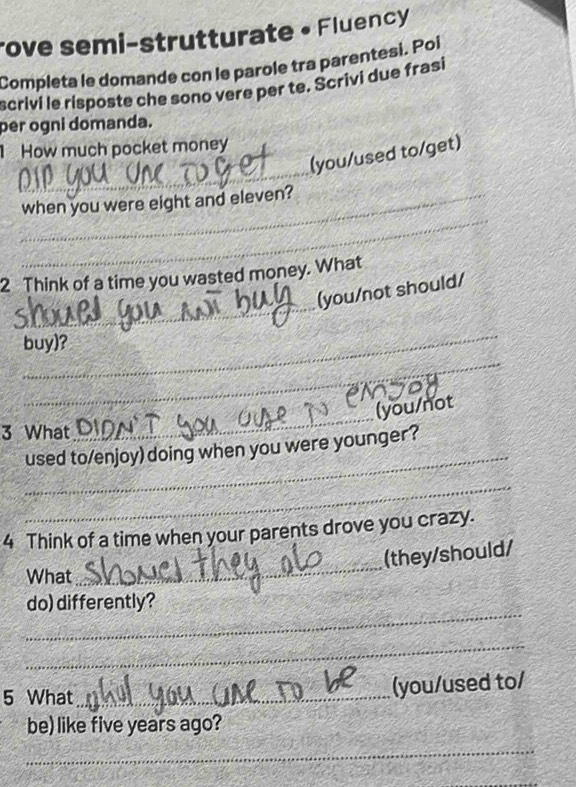 rove semi-strutturate • Fluency
Completa le domande con le parole tra parentesi. Poi
scrivi le risposte che sono vere per te. Scrivi due frasi
per ogni domanda.
1 How much pocket money
DID you use to get (you/used to/get)
when you were eight and eleven?
2 Think of a time you wasted money. What
should you not buy (you/not should/
buy)?
3 What DIDN'T you use to enjoy (you/not
used to/enjoy) doing when you were younger?
4 Think of a time when your parents drove you crazy.
What should they do (they/should/
do) differently?
5 What you use to be (you/used to/
be) like five years ago?